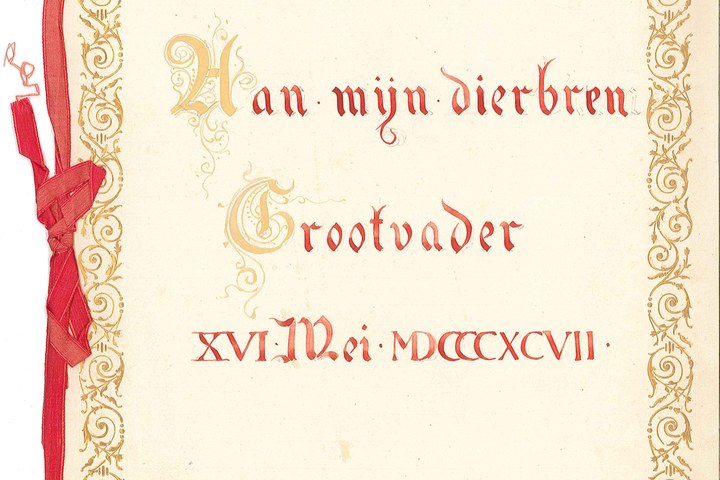 Aan · mijn · dierbren
Grootvader
XVI · Mei · MDCCCXCVII ·